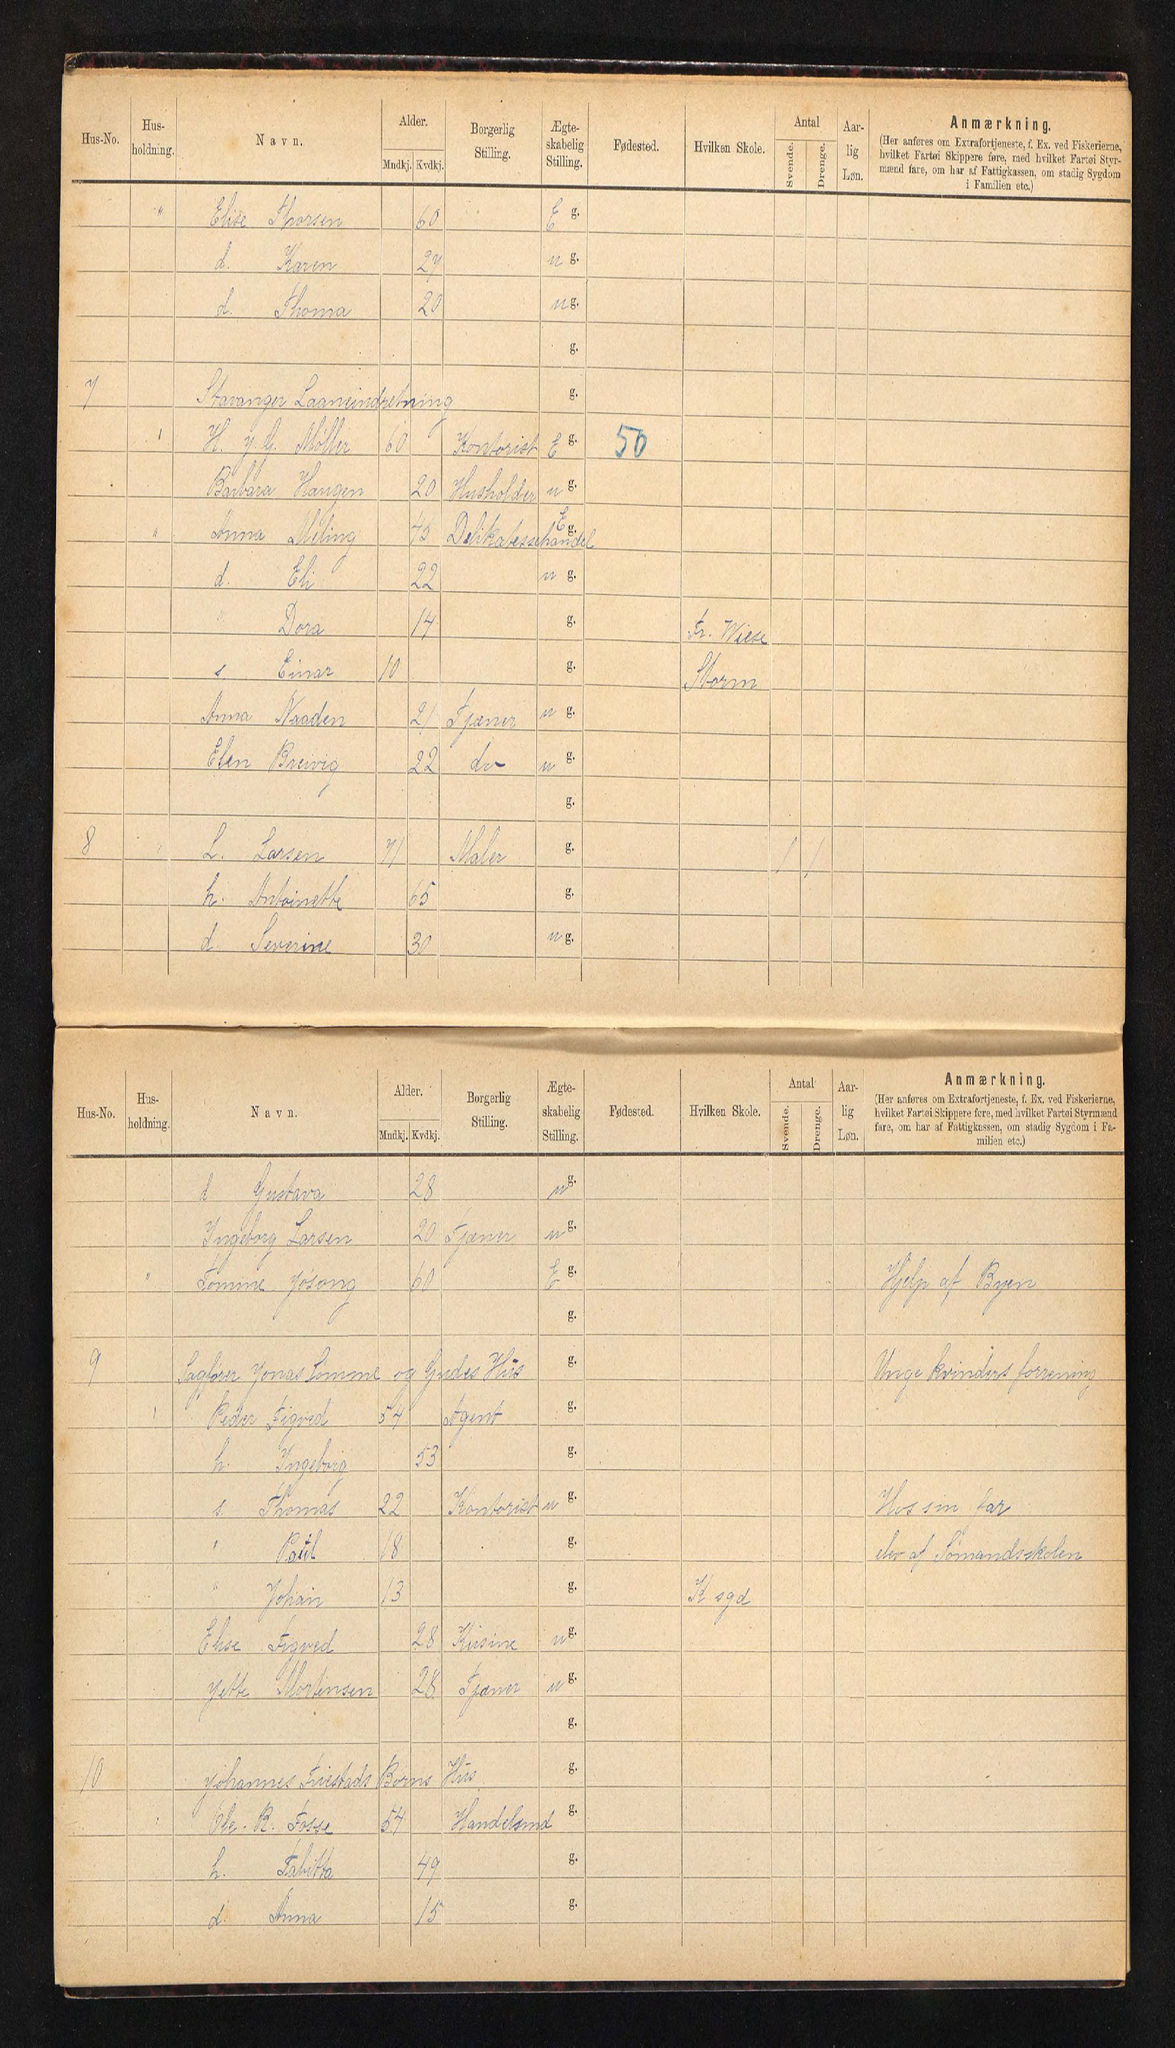 Hus-No. Hus-holdning. Navn. Alder. Mndkj. Kvdkj. Borgerlig Stilling. Ægte-skabelig Stilling. Fødested. Hvilken Skole. Antal Svende. Drenge. Aar-lig Løn. Anmærkning.
(Her anføres om Extrafortjeneste, f. Ex. ved Fiskerierne,
hvilket Fartøi Skippere føre, med hvilket Fartøi Styr-
mænd fare, om har af Fattigkassen, om stadig Sygdom
i Familien etc.)
" Elise Thorsen 60 E g.
d. Karen 27 u g.
d. Thoma 20 u g.
g.
7 Stavanger Laaneindretning g.
1 H. J. G. Møller 60 Kontorist E g. 50
Barbara Haugen 20 Husholder u g.
" Anna Meling 45 Delikatessehandel E g.
d. Eli 22 u g.
" Dora 14 g. Fr. Wiese
s Einar 10 g. Storm
Anna Naaden 21 Tjener u g.
Elen Breivig 22 do u g.
g.
8 " L. Larsen 71 Maler g. 1 1
h. Antoinette 65 g.
d. Severine 30 u g.
Hus-No. Hus-holdning. Navn. Alder. Mndkj. Kvdkj. Borgerlig Stilling. Ægte-skabelig Stilling. Fødested. Hvilken Skole. Antal Svende. Drenge. Aar-lig Løn. Anmærkning.
(Her anføres om Extrafortjeneste, f. Ex. ved Fiskerierne,
hvilket Fartøi Skippere føre, med hvilket Fartøi Styrmænd
fare, om har af Fattigkassen, om stadig Sygdom i Fa-
milien etc.)
d Gustava 28 u g.
Ingeborg Larsen 20 Tjener u g.
" Tomine Jøsang 60 E g. Hjelp af Byen
g.
9 Sagfører Jonas Sømme og Gjedes Hus g. Unge kvinders forrening
1 Peder Tigved 54 Agent g.
h. Ingeborg 53 g.
s. Thomas 22 Kontorist u g. Hos sin far
" Paul 18 g. elev af Sømandsskolen
" Johan 13 g. K sgd
Elise Tigved 28 Kusine u g.
Jette Mortensen 28 Tjener u g.
g.
10 Johannes Tvestads Børns Hus g.
1 Ole. R. Fosse 54 Handelsmd g.
h. Tabitta 49 g.
d. Anna 15 g.